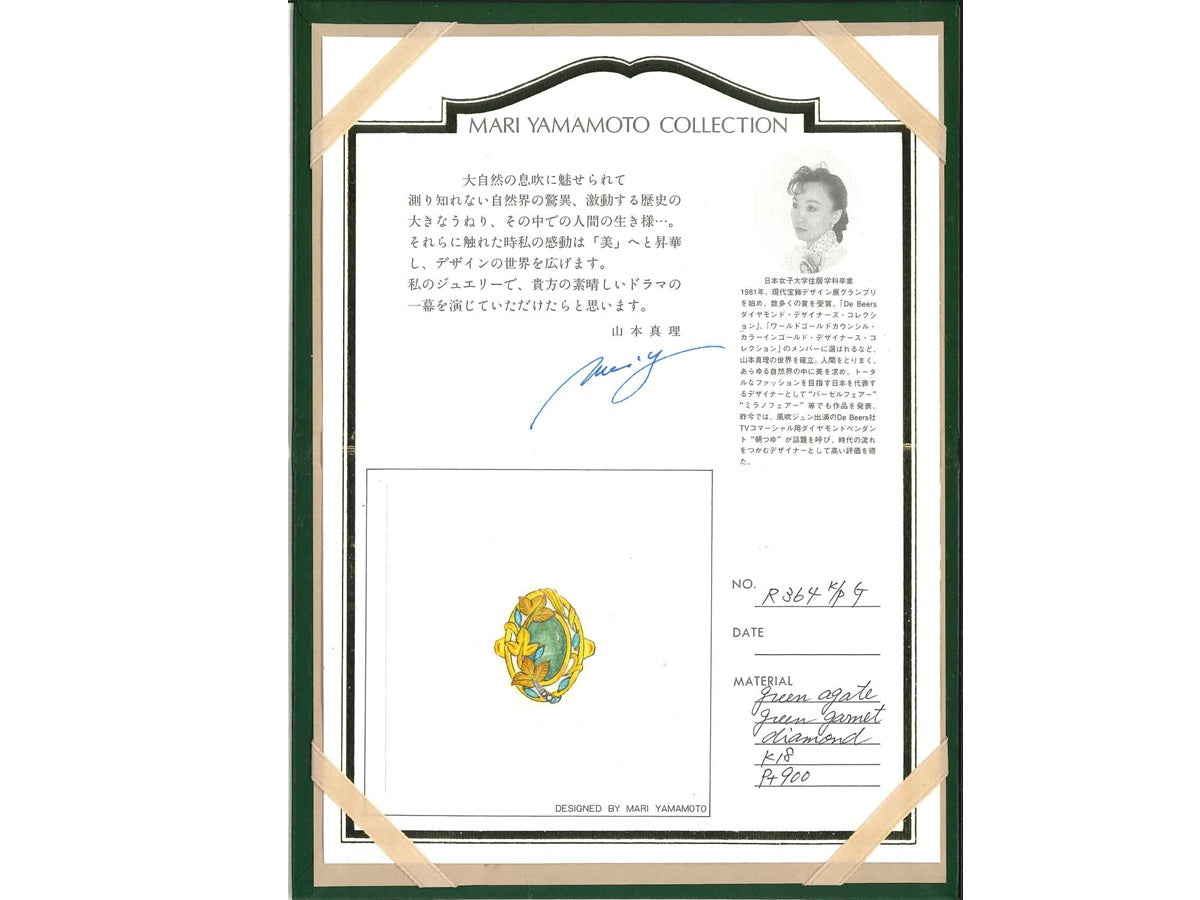 MARI YAMAMOTO COLLECTION
大自然の息吹に魅せられて
測り知れない自然界の驚異、激動する歴史の
大きなうねり、その中での人間の生き様…。
それらに触れた時私の感動は「美」へと昇華
し、デザインの世界を広げます。
私のジュエリーで、貴方の素晴しいドラマの
一幕を演じていただけたらと思います。
山本真理
Mari Y
日本女子大学住居学科卒業
1981年、現代宝飾デザイン展グランプリ
を始め、数多くの賞を受賞。「De Beers
ダイヤモンド・デザイナーズ・コレクシ
ョン」、「ワールドゴールドカウンシル・
カラーインゴールド・デザイナース・コ
レクション」のメンバーに選ばれるなど、
山本真理の世界を確立。人間をとりまく、
あらゆる自然界の中に美を求め、トータ
ルなファッションを目指す日本を代表す
るデザイナーとして“バーゼルフェアー”
“ミラノフェアー”等でも作品を発表。
昨今では、風吹ジュン出演のDe Beers社
TVコマーシャル用ダイヤモンドペンダン
ト“朝つゆ”が話題を呼び、時代の流れ
をつかむデザイナーとして高い評価を得
た。
NO. R364 K/P G
DATE
MATERIAL
green agate
green garnet
diamond
K18
Pt900
DESIGNED BY MARI YAMAMOTO